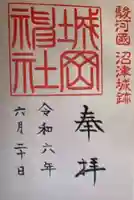 駿河國 沼津城跡
城岡神社
奉拝
令和六年
六月二十日